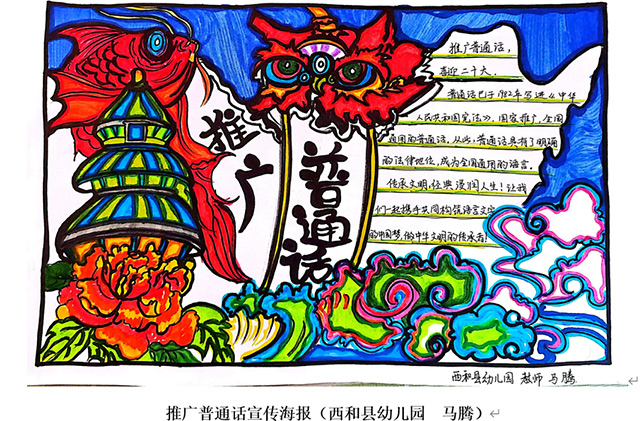 推广
普通话
推广普通话，
喜迎二十大。
普通话已于1982年写进《中华
人民共和国宪法》，国家推广全国
通用的普通话。从此，普通话具有了明确
的法律地位，成为全国通用的语言。
传承文明，经典浸润人生！让我
们一起携手共同构筑语言文字
的中国梦，做中华文明的传承者！
西和县幼儿园 教师 马腾
推广普通话宣传海报（西和县幼儿园 马腾）